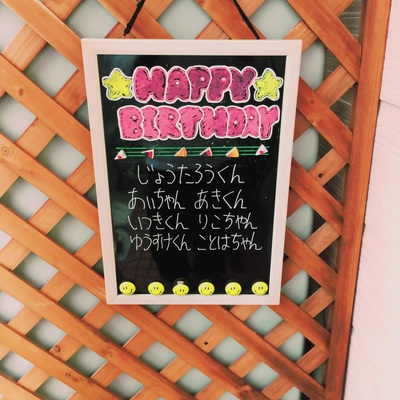 HAPPY
BIRTHDAY
じょうたろうくん
あいちゃん あきくん
いつきくん りこちゃん
ゆうすけくん ことはちゃん